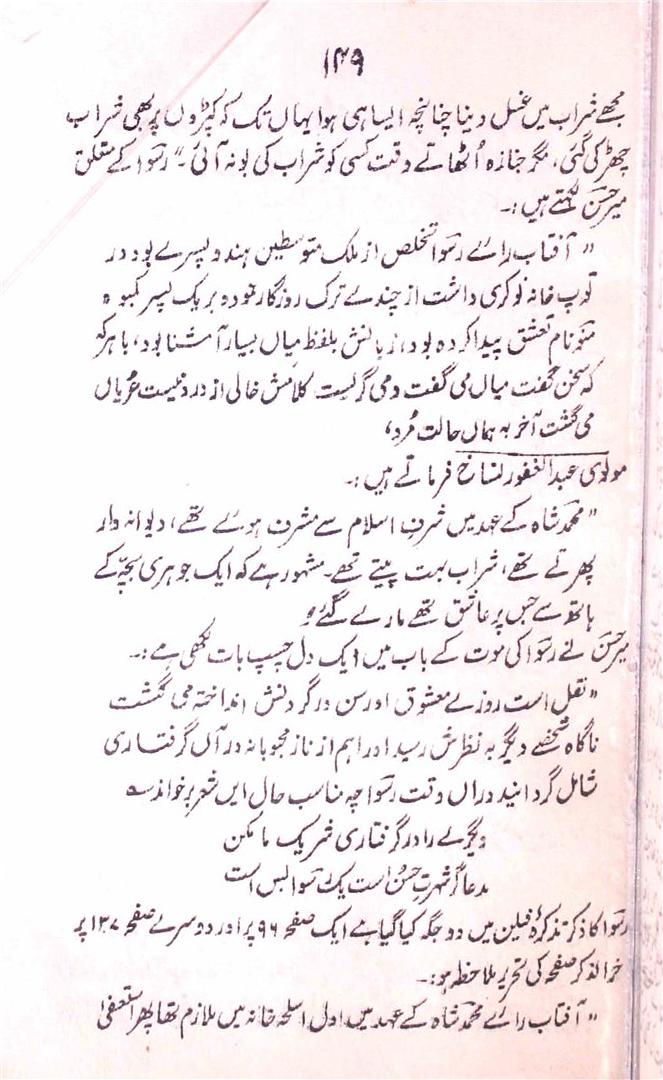 ۱۴۹
مجھے شراب میں غسل دینا چنانچہ ایسا ہی ہوا یہاں تک کہ کپڑوں پر بھی شراب
چھڑکی گئی، مگر جنازہ اُٹھاتے وقت کسی کو شراب کی بو نہ آئی۔" رسوا کے متعلق
میر حسن لکھتے ہیں:۔
"آفتاب رائے رسوا تخلص از ملک متوسطین ہندو پسرے بود در
توپ خانہ نوکری داشت از چندے ترک روزگار نمودہ بر یک پسر کمبوہ
منو نام تعشق پیدا کردہ بود، زبانش بلفظ میاں بسیار آشنا بود، با ہر کہ
کہ سخن گفت میاں می گفت و می گریست کلامش خالی از درد نیست عُریاں
می گشت آخر بہ ہماں حالت مُرد،
مولوی عبدالغفور نساخ فرماتے ہیں:۔
"محمد شاہ کے عہد میں شرفِ اسلام سے مشرف ہوئے تھے، دیوانہ وار
پھرتے تھے، شراب بہت پیتے تھے۔ مشہور ہے کہ ایک جوہری بچّہ کے
ہاتھ سے جس پر عاشق تھے مارے گئے"
میر حسن نے رسوا کی موت کے باب میں ایک دل چسپ بات لکھی ہے:۔
"نقل است روزے معشوق اورسن در گردنش انداختہ می گشت
ناگاہ شخصے دیگر بہ نظرش رسید اورا ہم از ناز محبوبانہ در آں گرفتاری
شامل گردانید دراں وقت رسوا چہ مناسب حال ایں شعر بر خواند ؎
دیگرے را در گرفتاری شریک ما مکن
مدعا گر شہرتِ حسن است یک رسوا بس است
رسوا کا ذکر تذکرۂ فیلن میں دو جگہ کیا گیا ہے ایک صفحہ ۹۶ پر اور دوسرے صفحہ ۱۳۷ پر
خر الذکر صفحہ کی تحریر ملاحظہ ہو:۔
"آفتاب رائے محمد شاہ کے عہد میں اول اسلحہ خانہ میں ملازم تھا پھر استعفیٰ